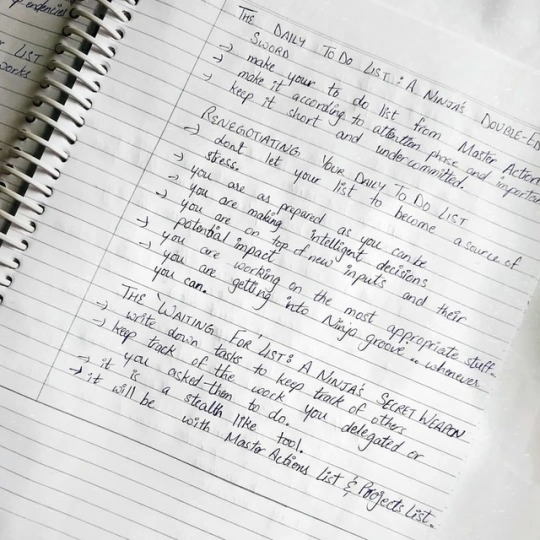 pendencies
LIST
works
THE DAILY TO DO LIST : A NINJA'S DOUBLE-ED
SWORD
→ make your to do list from Master Action
→ make it according to attention phase and importan
→ keep it short and undercommitted.
RENEGOTIATING YOUR DAILY TO DO LIST
→ dont let your list to become a source of
stress.
→ you are as prepared as you can be
→ you are making intelligent decisions
→ you are on top of new inputs and their
potential impact
→ you are working on the most appropriate stuff.
→ you are getting into Ninja groove .. whenever
you can.
THE 'WAITING FOR' LIST : A NINJA'S SECRET WEAPON
→ write down tasks to keep track of others
→ keep track of the work you delegated or
you asked them to do.
→ it is a stealth like tool.
→ it will be with Master Actions List & Projects List.